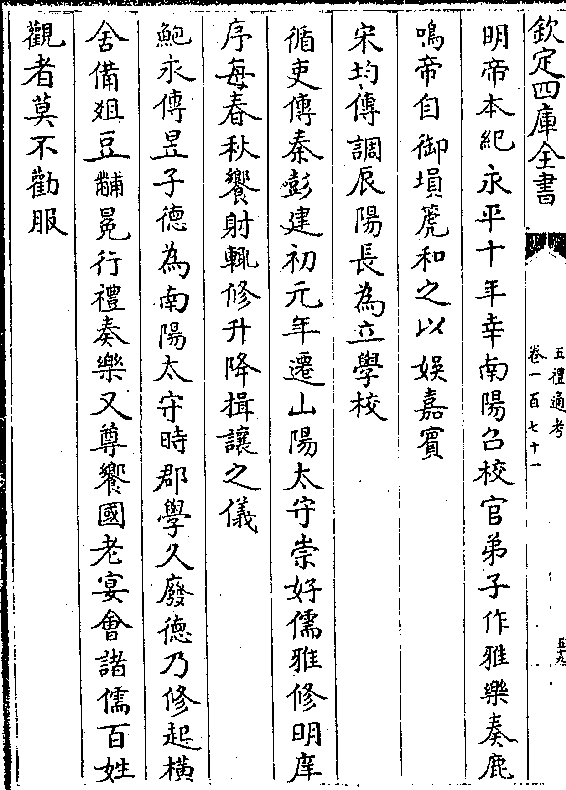 欽定四庫全書
五禮通考
卷一百七十一
五九
明帝本紀永平十年幸南陽召校官弟子作雅樂奏鹿
鳴帝自御塤篪和之以娛嘉賓
宋均傳調辰陽長為立學校
循吏傳秦彭建初元年遷山陽太守崇好儒雅修明庠
序每春秋饗射輒修升降揖讓之儀
鮑永傳昱子德為南陽太守時郡學久廢德乃修起橫
舍備俎豆黼冕行禮奏樂又尊饗國老宴會諸儒百姓
觀者莫不勸服